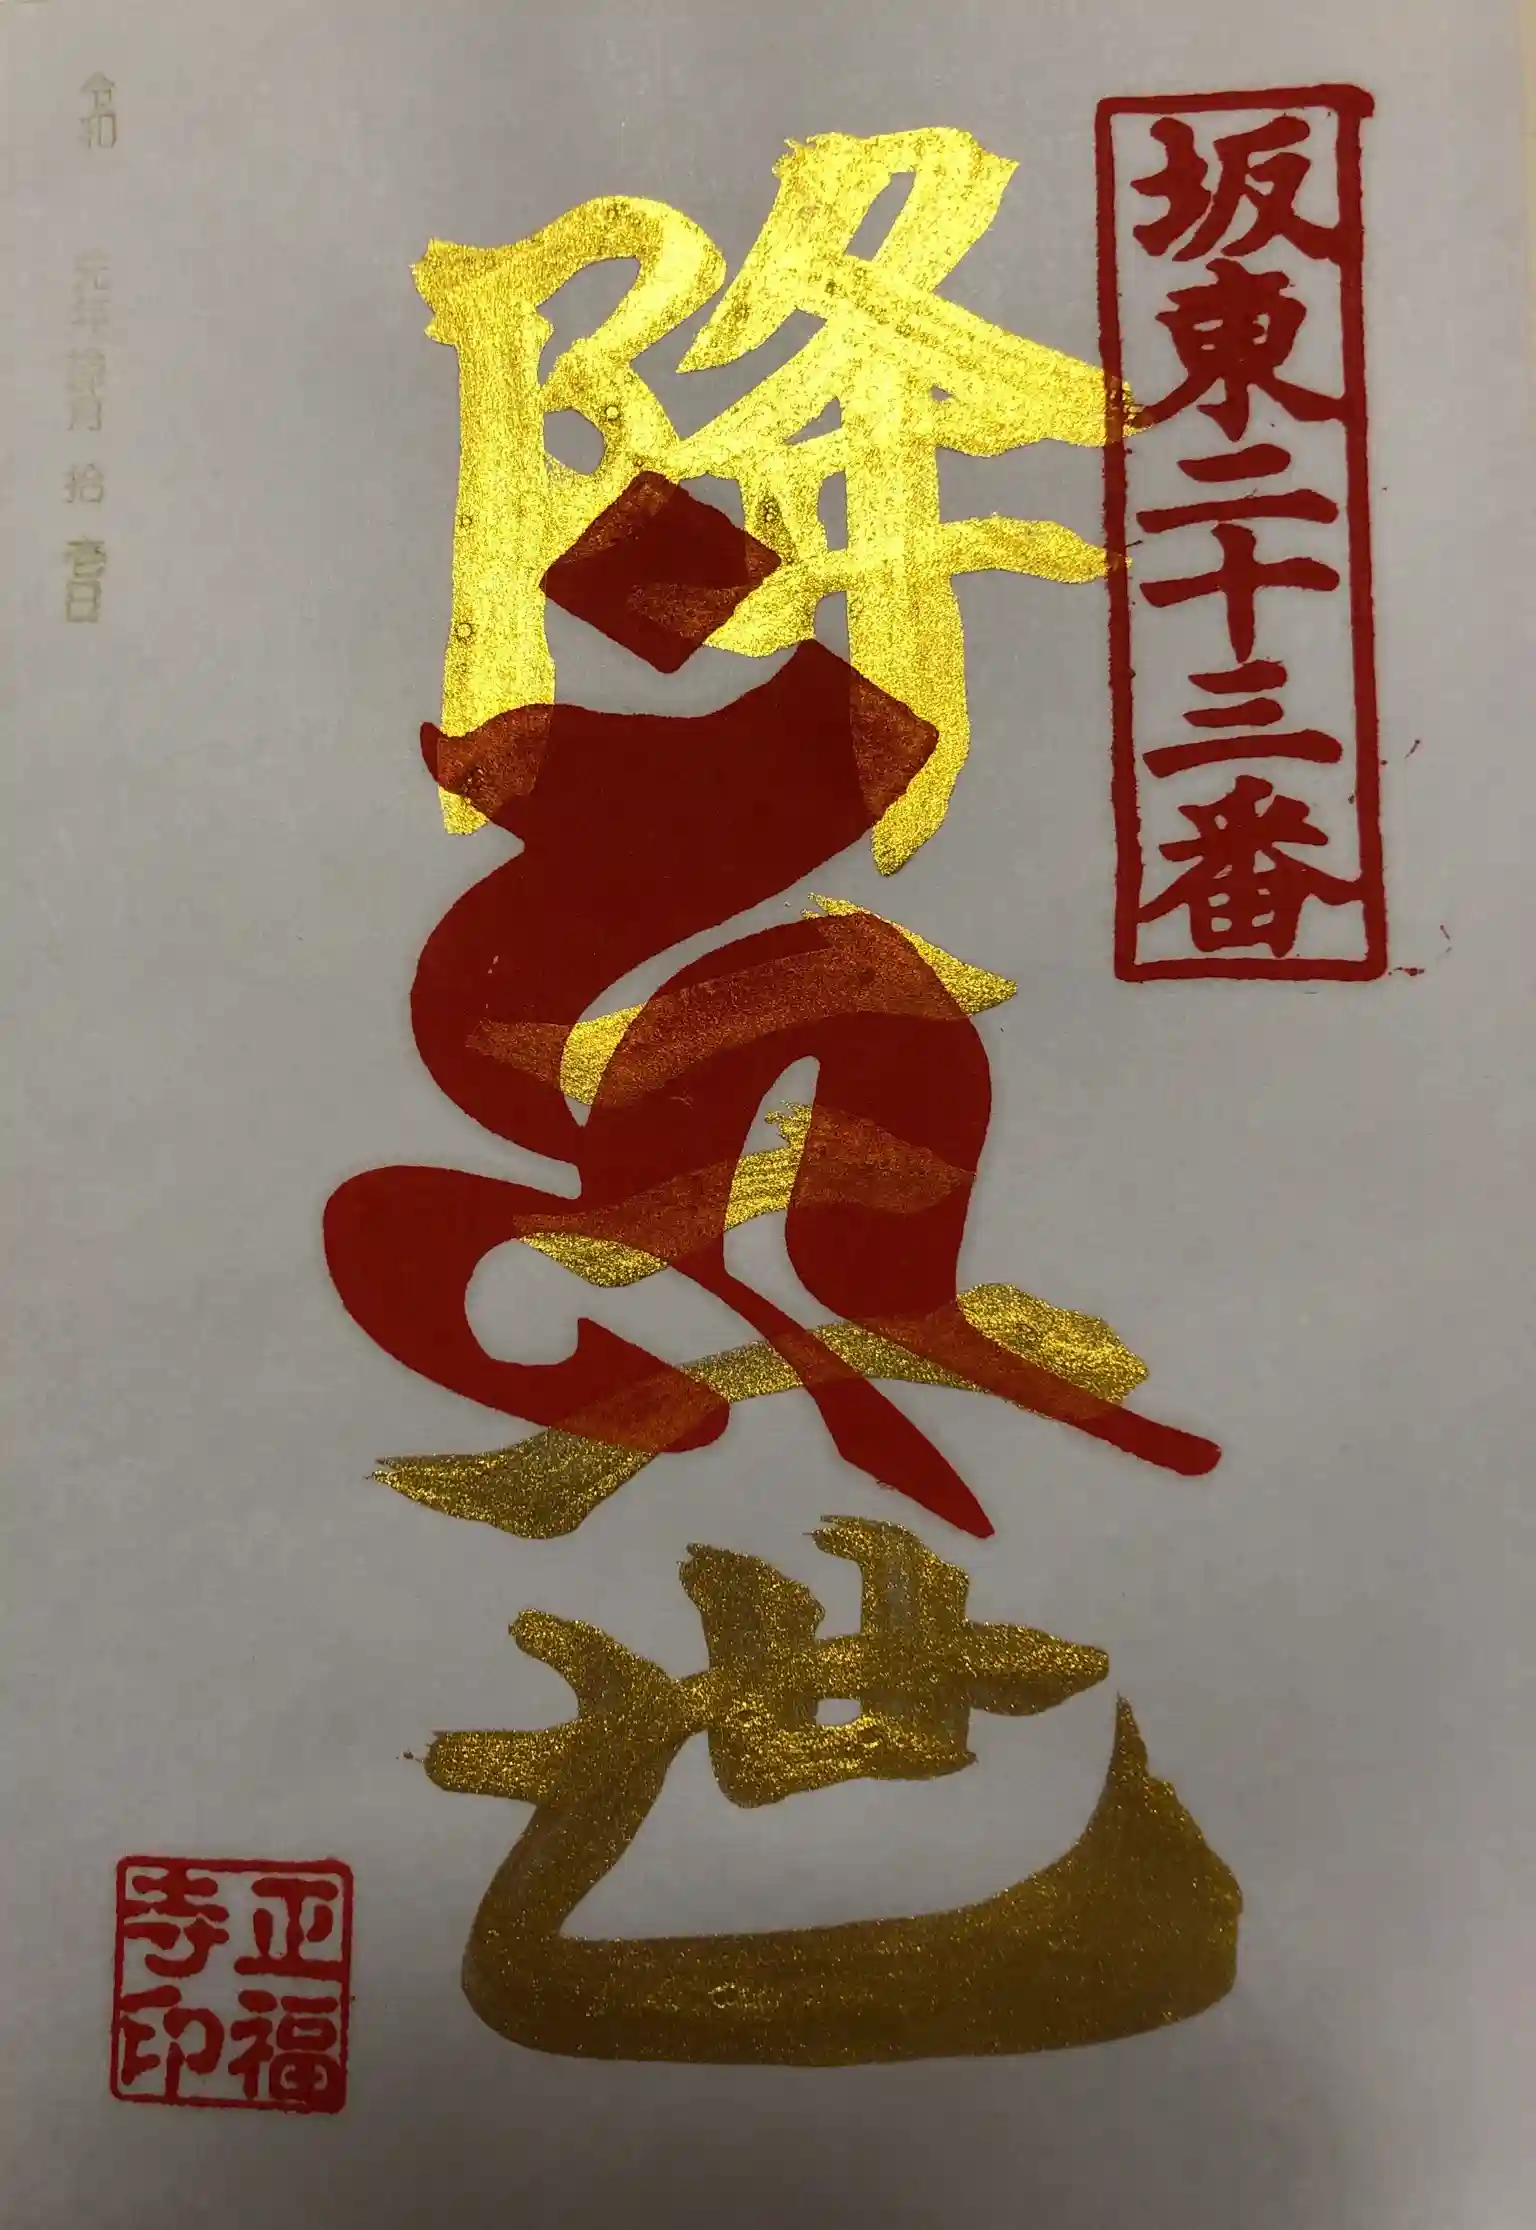 坂東二十三番
降三世
令和 元年 拾月 拾 壱日
正福
寺印